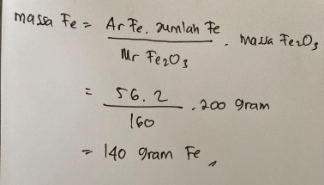 massa Fe = Ar Fe . Jumlah Fe / Mr Fe₂O₃ . massa Fe₂O₃
= 56 . 2 / 160 . 200 gram
= 140 gram Fe